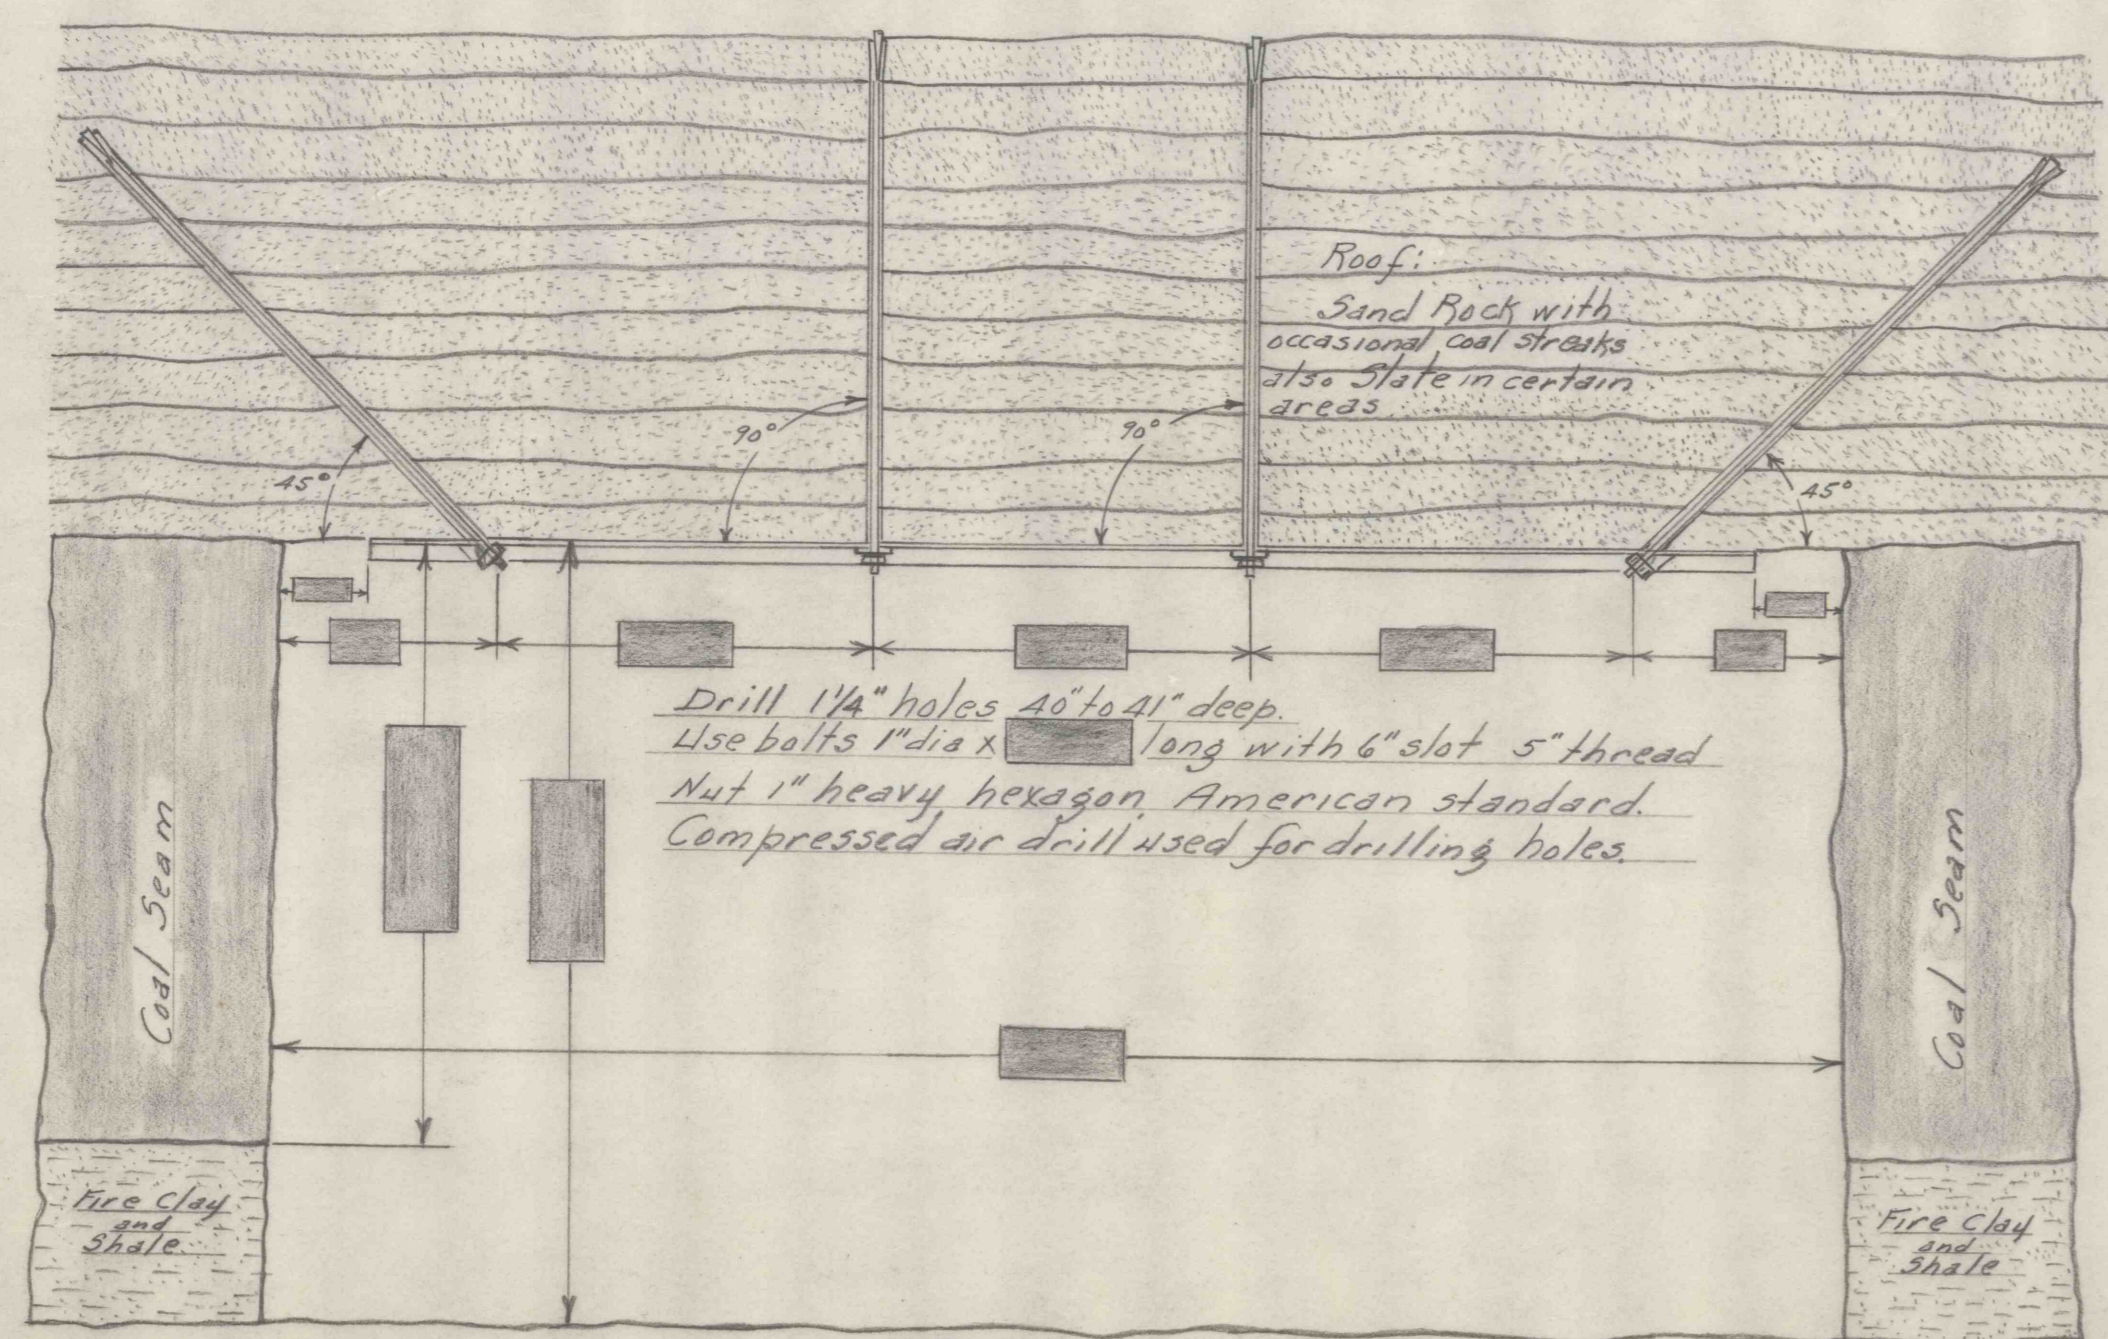 Roof:
Sand Rock with
occasional coal streaks
also Slate in certain
areas
90°
90°
45°
45°
Drill 1 1/4" holes 40" to 41" deep.
Use bolts 1" dia x long with 6" slot 5" thread
Nut 1" heavy hexagon American standard.
Compressed air drill used for drilling holes.
Coal Seam
Coal Seam
Fire Clay
and
Shale
Fire Clay
and
Shale